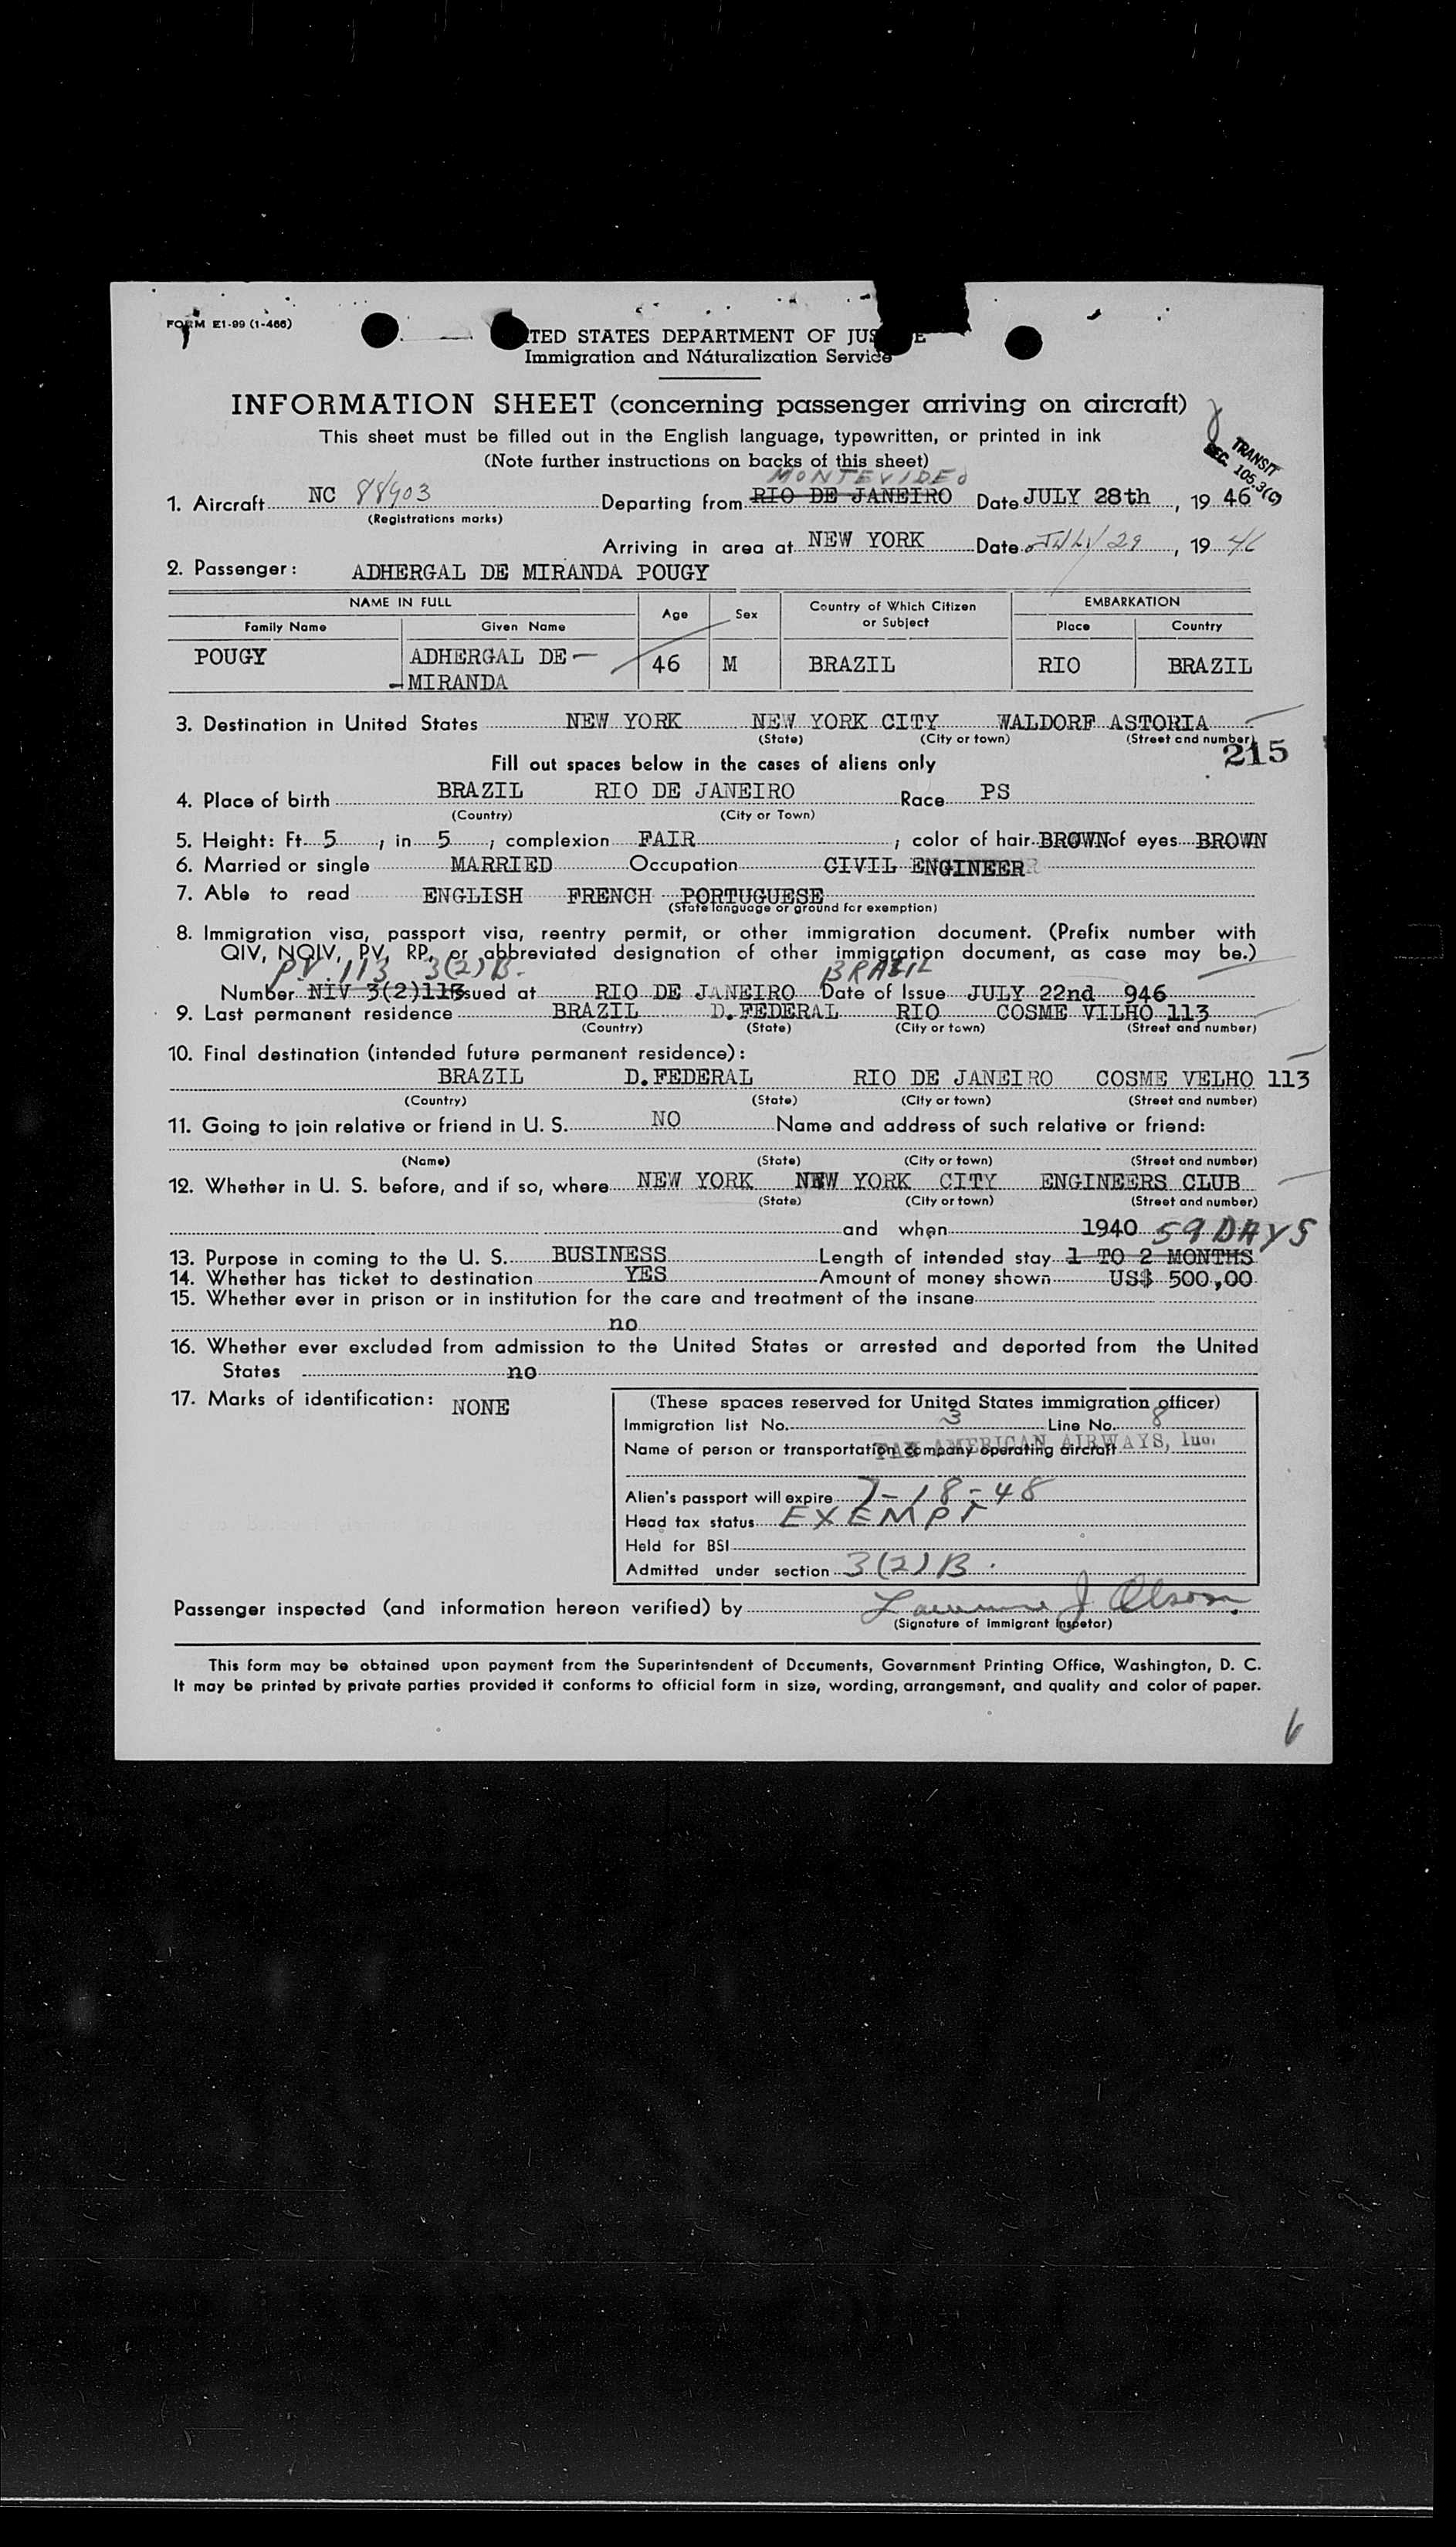 FORM E1-99 (1-466)
TED STATES DEPARTMENT OF JUS E
Immigration and Naturalization Service
INFORMATION SHEET (concerning passenger arriving on aircraft)
This sheet must be filled out in the English language, typewritten, or printed in ink
(Note further instructions on backs of this sheet)
TRANSIT
SEC. 105.3(C)
MONTEVIDEO
1. Aircraft NC 88903 Departing from RIO DE JANEIRO Date JULY 28th, 19 46
(Registrations marks)
Arriving in area at NEW YORK Date JULY 29, 19 46
2. Passenger: ADHERGAL DE MIRANDA POUGY
NAME IN FULL Age Sex Country of Which Citizen or Subject EMBARKATION
Family Name Given Name Place Country
POUGY ADHERGAL DE- 46 M BRAZIL RIO BRAZIL
-MIRANDA
3. Destination in United States NEW YORK NEW YORK CITY WALDORF ASTORIA
(State) (City or town) (Street and number)
215
Fill out spaces below in the cases of aliens only
4. Place of birth BRAZIL RIO DE JANEIRO Race PS
(Country) (City or Town)
5. Height: Ft. 5, in 5, complexion FAIR, color of hair BROWN of eyes BROWN
6. Married or single MARRIED Occupation CIVIL ENGINEER
7. Able to read ENGLISH FRENCH PORTUGUESE
(State language or ground for exemption)
8. Immigration visa, passport visa, reentry permit, or other immigration document. (Prefix number with
QIV, NQIV, PV, RP, or abbreviated designation of other immigration document, as case may be.)
PV 113 3(2)B. BRAZIL
Number NIV 3(2)113 issued at RIO DE JANEIRO Date of Issue JULY 22nd 946
9. Last permanent residence BRAZIL D.FEDERAL RIO COSME VILHO 113
(Country) (State) (City or town) (Street and number)
10. Final destination (intended future permanent residence):
BRAZIL D.FEDERAL RIO DE JANEIRO COSME VELHO 113
(Country) (State) (City or town) (Street and number)
11. Going to join relative or friend in U. S. NO Name and address of such relative or friend:
(Name) (State) (City or town) (Street and number)
12. Whether in U. S. before, and if so, where NEW YORK NEW YORK CITY ENGINEERS CLUB
(State) (City or town) (Street and number)
and when 1940 59 DAYS
13. Purpose in coming to the U. S. BUSINESS Length of intended stay 1 TO 2 MONTHS
14. Whether has ticket to destination YES Amount of money shown US$ 500,00
15. Whether ever in prison or in institution for the care and treatment of the insane
no
16. Whether ever excluded from admission to the United States or arrested and deported from the United
States no
17. Marks of identification: NONE
(These spaces reserved for United States immigration officer)
Immigration list No. 3 Line No. 8
Name of person or transportation company operating aircraft PAN AMERICAN AIRWAYS, Inc.
Alien's passport will expire 7-18-48
Head tax status EXEMPT
Held for BSI
Admitted under section 3(2)B.
Passenger inspected (and information hereon verified) by Lawrence J Olson.
(Signature of immigrant inspetor)
This form may be obtained upon payment from the Superintendent of Documents, Government Printing Office, Washington, D. C.
It may be printed by private parties provided it conforms to official form in size, wording, arrangement, and quality and color of paper.
6